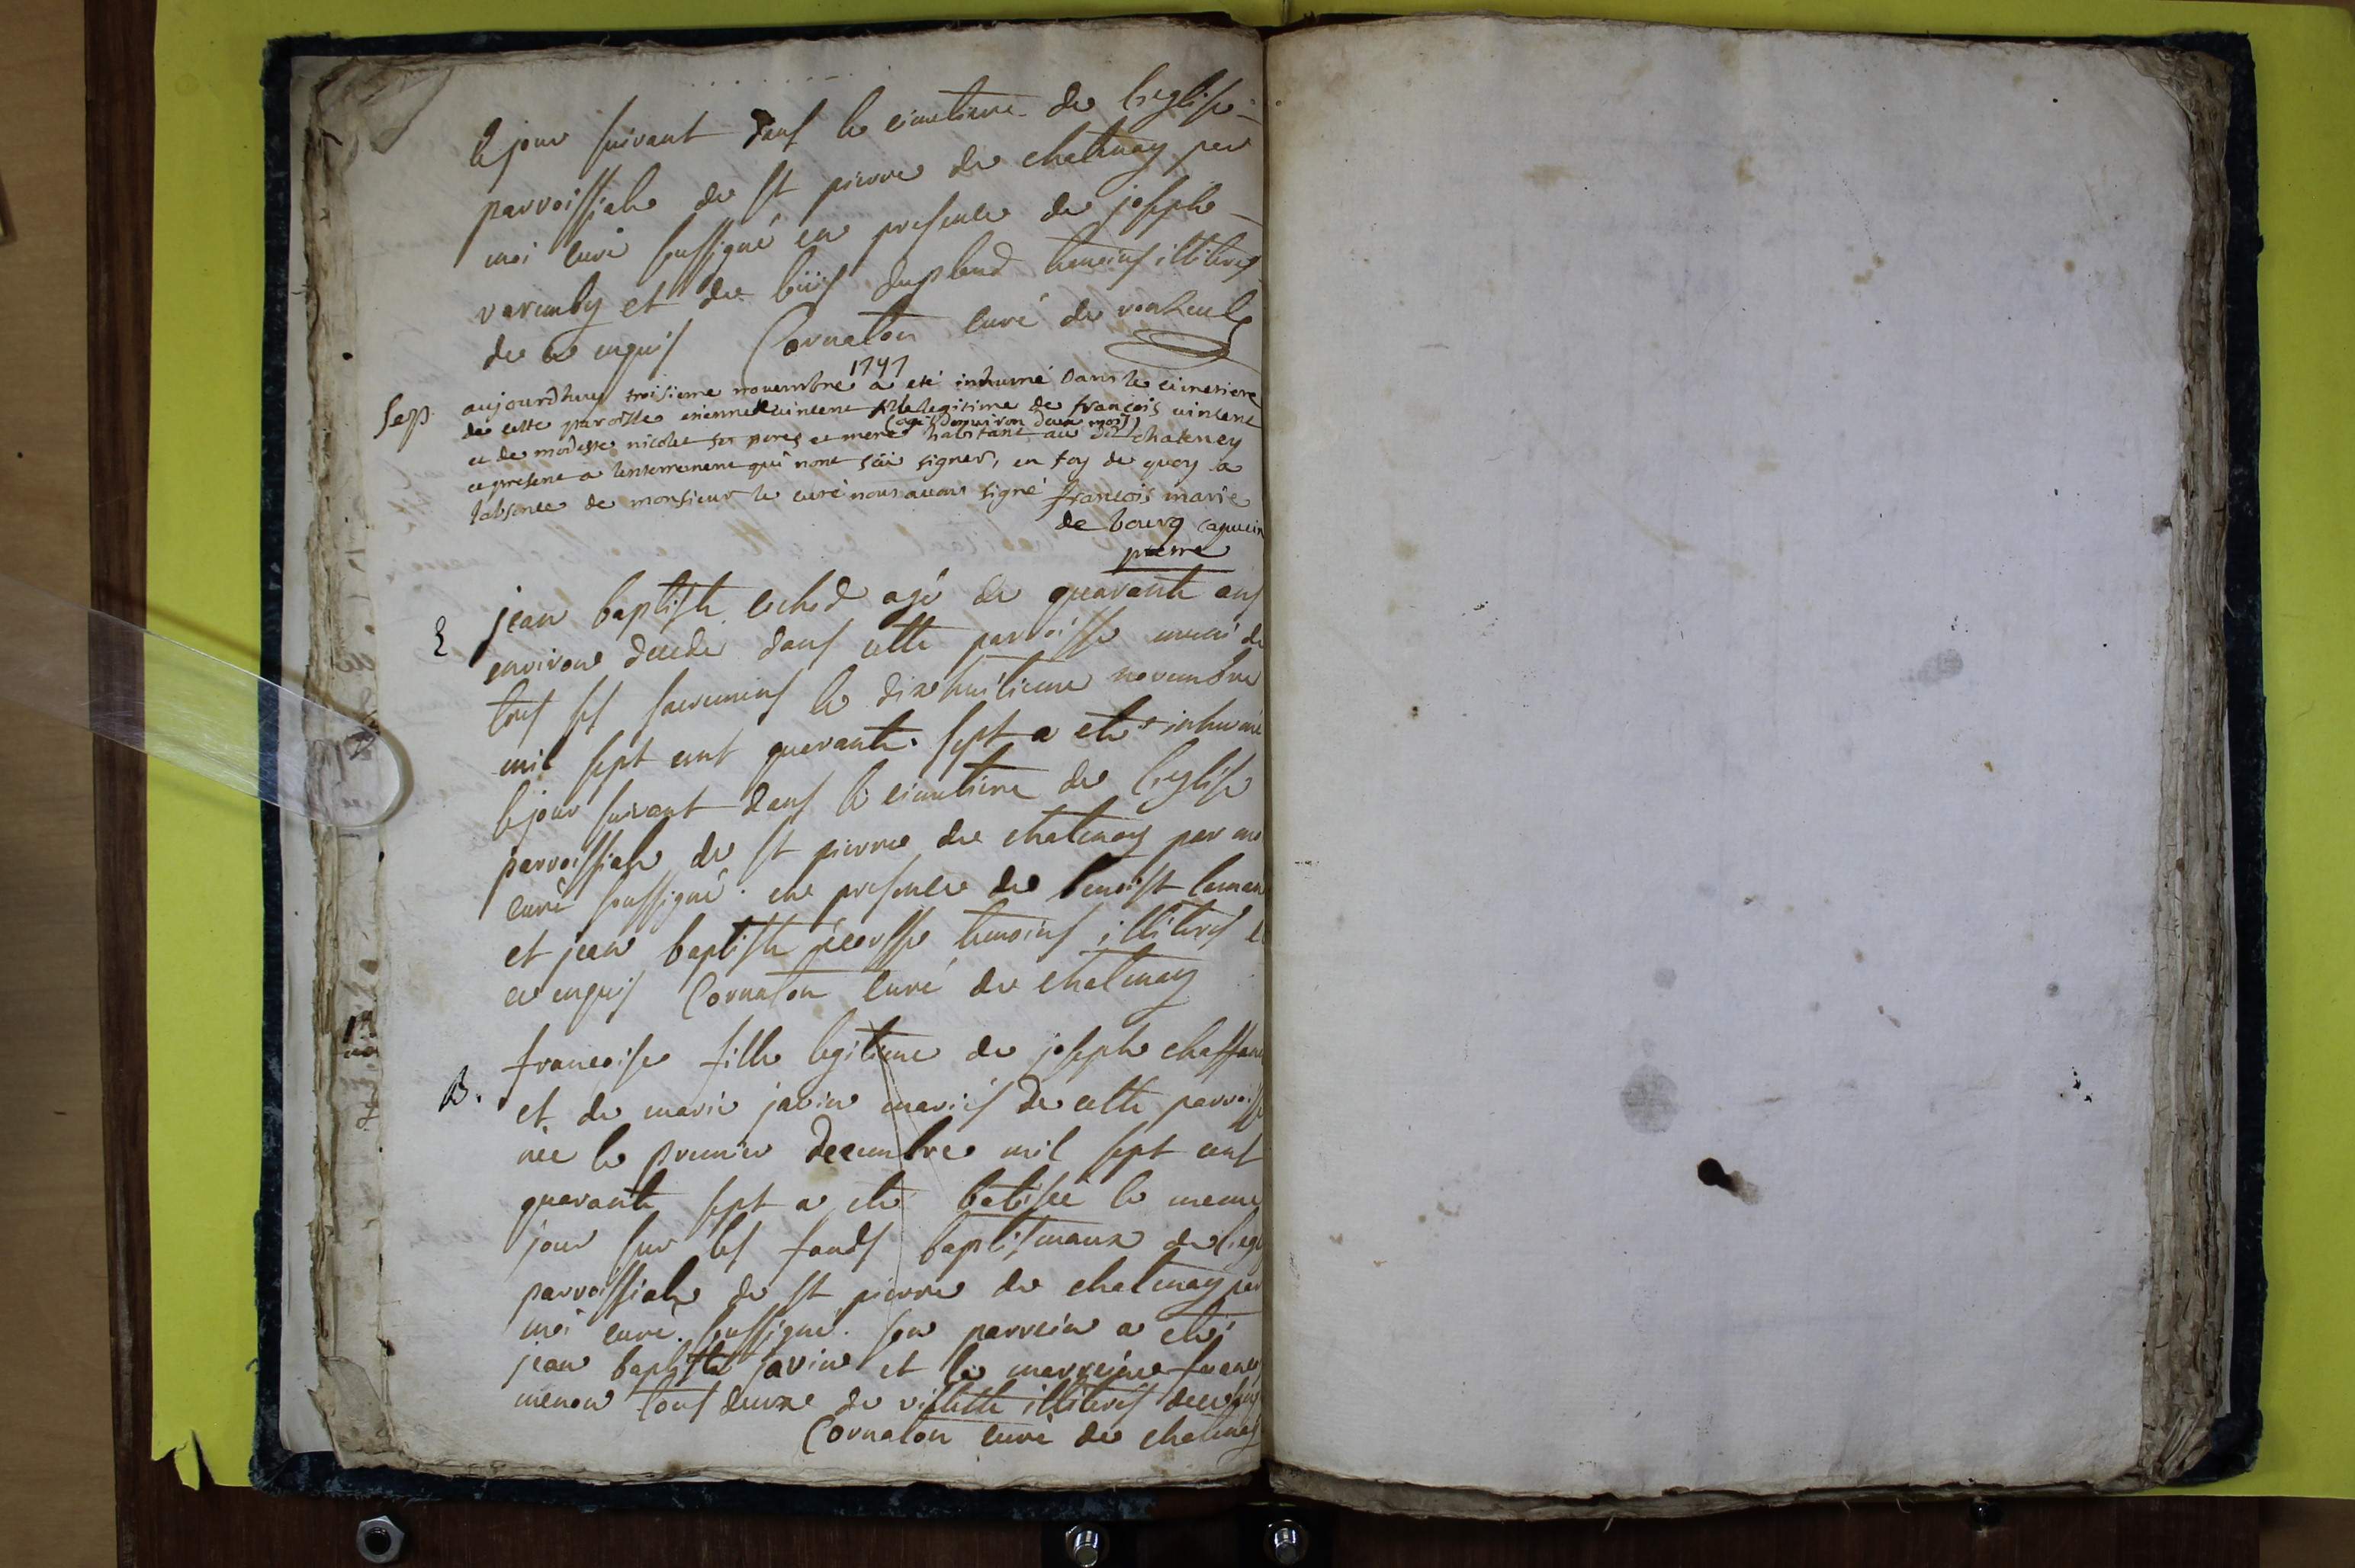 le jour suivant dans le cimetiere de l'eglise
parroissiale de st pierre de chatenay par
moi curé soussigné en presence de joseph
varemby et de temoins illiteres
de ce enquis Cornaton curé de
1747
Sep. aujourdhuy troisieme nouembre a eté inhumé Dans le cimetiere
de cette paroisse etienne uincent fils legitime de françois uincent
(agé Denuiron deux mois)
et de modeste nicolet ses peres et mere habitant au dit chateney
et present a lenterrement qui nont sçû signer, en foy de quoy a
labsence de monsieur le curé nous auons signé françois marie
de bourg capucin
pretre
E jean baptiste age de quarante ans
environ decede dans cette parroisse muni de
tous ses sacremens le dixhuitieme novembre
mil sept cent quarante sept a ete inhumé
le jour suivant dans le cimetiere de l'eglise
parroissiale de st pierre de chatenay par moi
curé soussigné en presence de benoist
et jean baptiste temoins illiteres de
ce enquis Cornaton curé de chatenay
B. francoise fille legitime de joseph
et de marie javin mariés de cette parroisse
née le premier decembre mil sept cent
quarante sept a ete batisée le meme
jour sur les fonds baptismaux de l'eg
parroissiale de st pierre de chatenay par
moi curé soussigné son parrein a eté
jean baptiste javin et la marreine
menon tous deux de villette illiteres de ce
Cornaton curé de chatenay